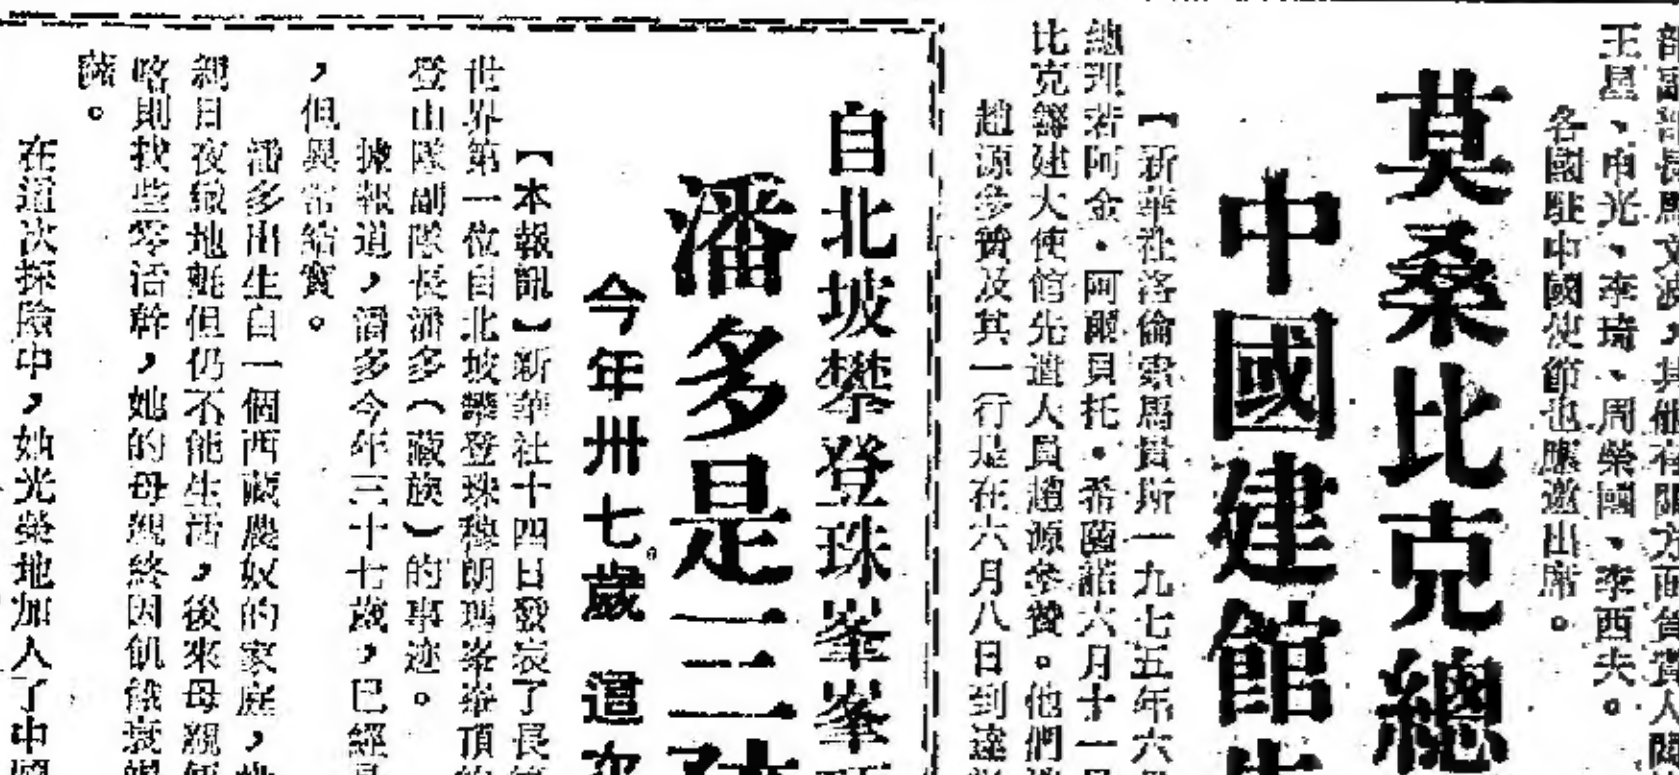 部副部長馬文波，其他有關方面負責人關
王星、申光、李琦、周榮國、李西夫。
各國駐中國使節也應邀出席。
莫桑比克總
中國建館先
【新華社洛倫索馬貴斯一九七五年六月
總理若阿金・阿爾貝托・希薩諾六月十一日
比克籌建大使館先遣人員趙源參贊。他們
趙源參贊及其一行是在六月八日到達
自北坡攀登珠峯峯頂
潘多是三孩
今年卅七歲 這次
【本報訊】新華社十四日發表了長
世界第一位自北坡攀登珠穆朗瑪峯峯頂的
登山隊副隊長潘多（藏族）的事迹。
據報道，潘多今年三十七歲，已經是
，但異常結實。
潘多出生自一個西藏農奴的家庭，她
親日夜織地氈但仍不能生活，後來母親便
喀則找些零活幹，她的母親終因飢餓衰竭
薩。
在這次探險中，她光榮地加入了中國